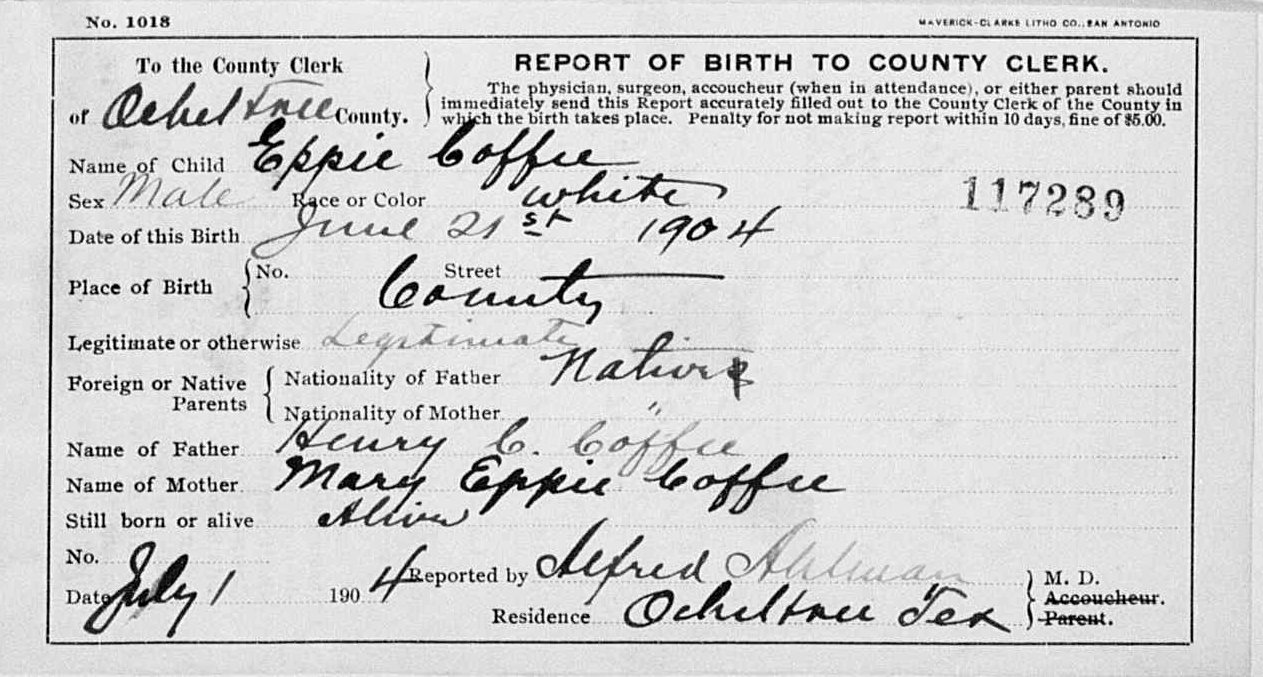 No. 1018 MAVERICK-CLARKE LITHO CO., SAN ANTONIO
To the County Clerk
of Ochiltree County.
REPORT OF BIRTH TO COUNTY CLERK.
The physician, surgeon, accoucheur (when in attendance), or either parent should
immediately send this Report accurately filled out to the County Clerk of the County in
which the birth takes place. Penalty for not making report within 10 days, fine of $5.00.
Name of Child Eppie Coffee
Sex Male Race or Color white 117289
Date of this Birth June 21st 1904
Place of Birth No. Street
County
Legitimate or otherwise Legitimate
Foreign or Native Parents
Nationality of Father Native
Nationality of Mother "
Name of Father Henry C. Coffee
Name of Mother Mary Eppie Coffee
Still born or alive Alive
No.
Date July 1 1904 Reported by Alfred Ahlman M. D.
Accoucheur.
Residence Ochiltree Tex Parent.